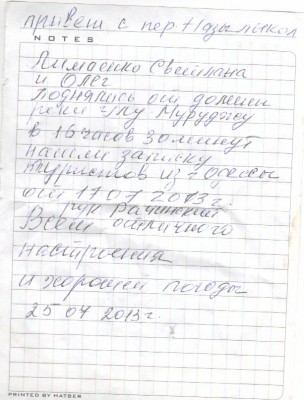 привет с пер. Надзылыкол
NOTES
Лимаенко Светлана
и Олег
поднялись от долины
реки Муруджу
в 16 часов 30 минут
нашли записку
туристов из г. Одессы
от 17.07 2013г.
рук Рачинский
Всем отличного
настроения
и хорошей погоды
25 07 2013г.
PRINTED BY HATBER